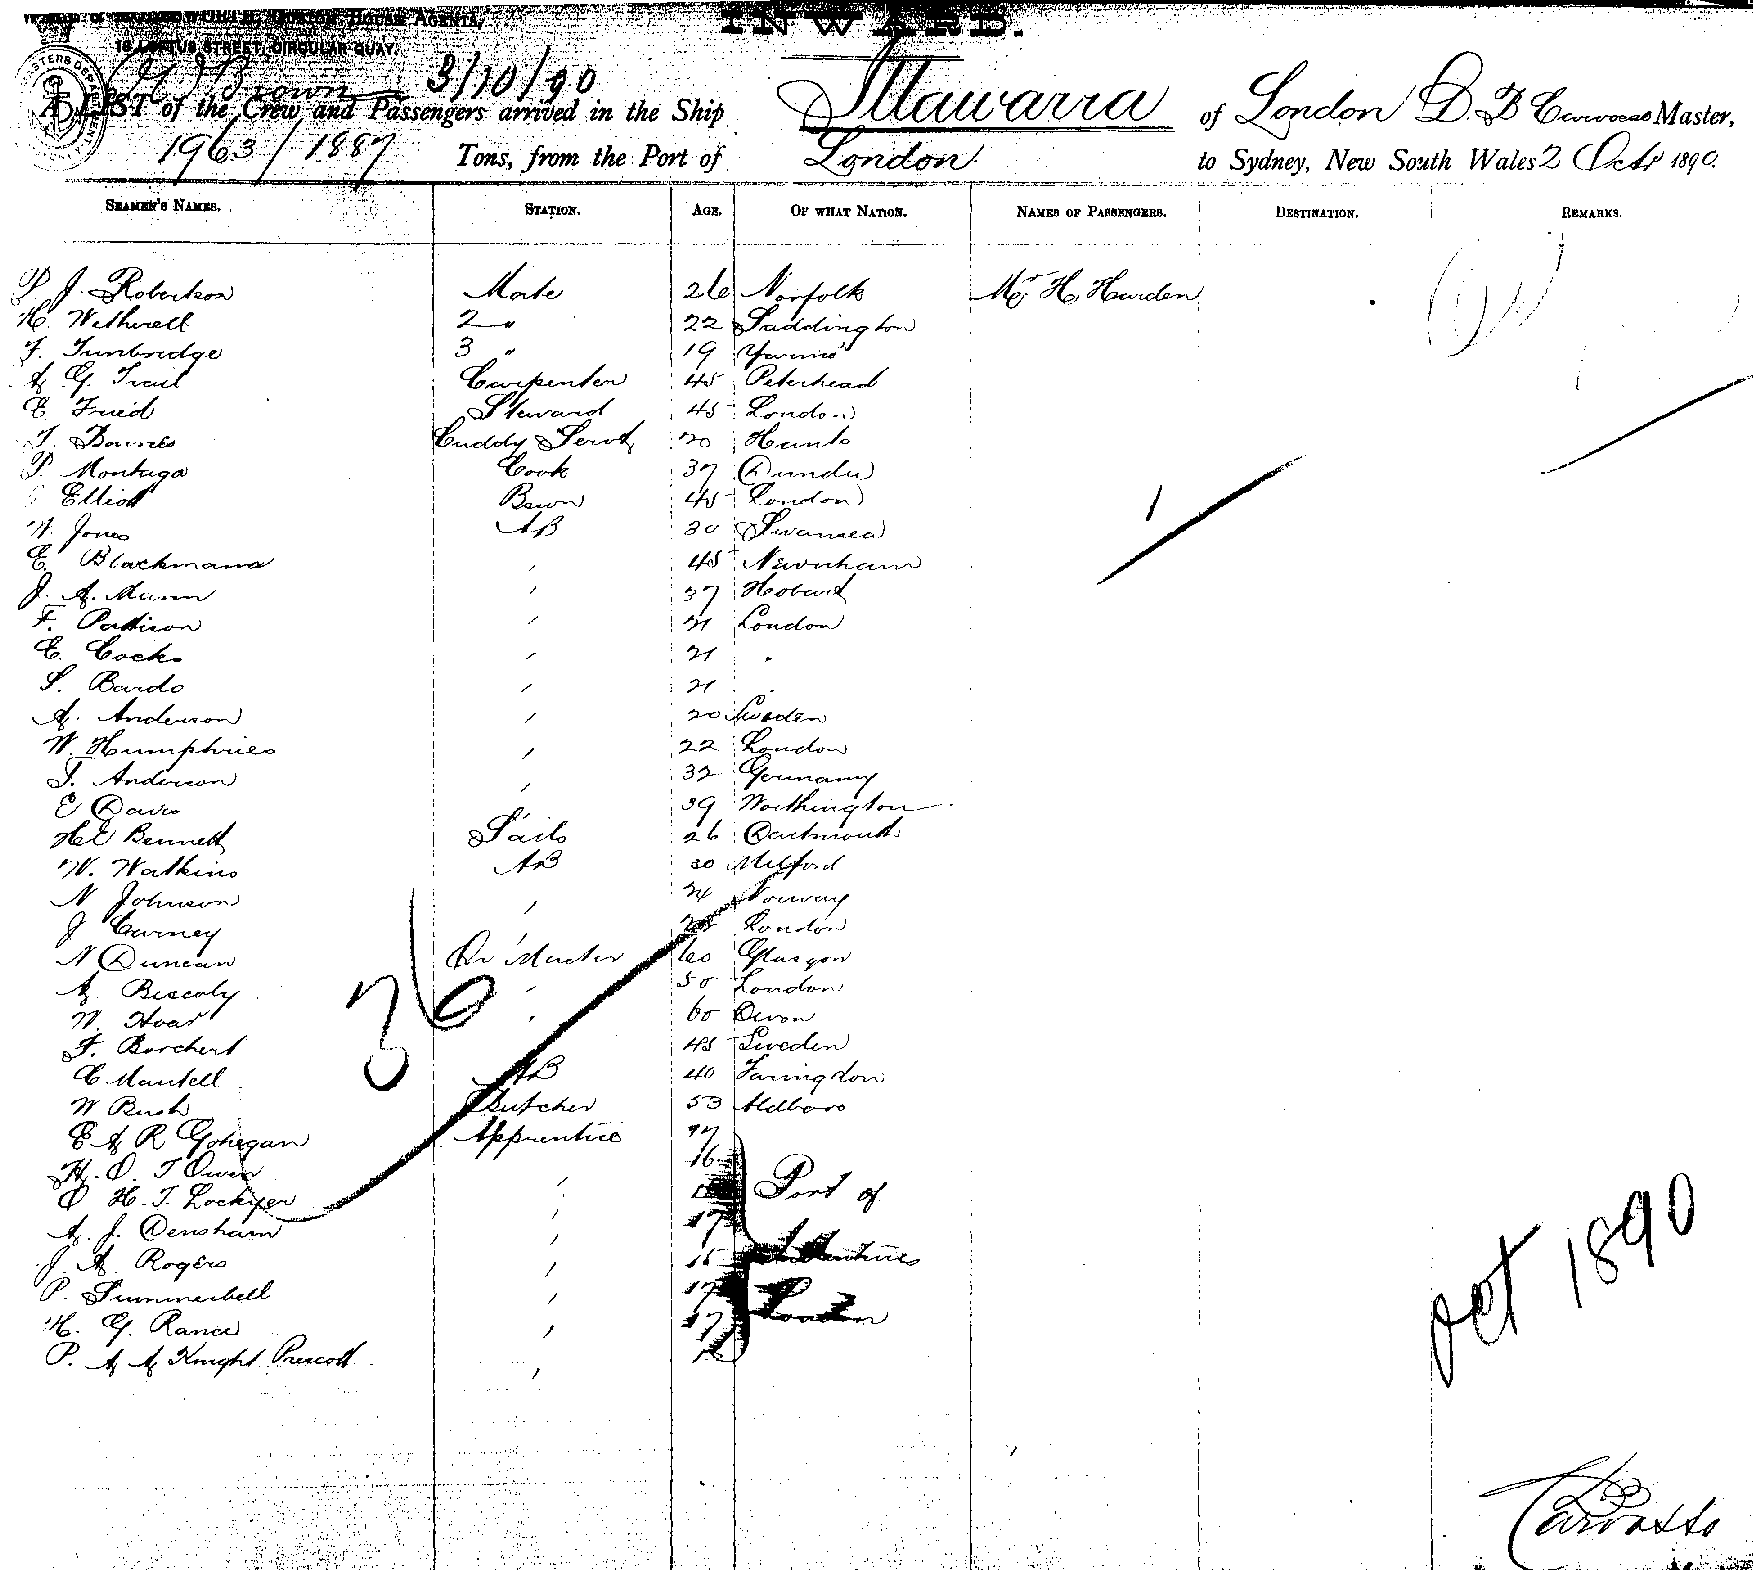 INWARD.
House Agents,
18 LOFTUS STREET, CIRCULAR QUAY.
Brown 3/10/90
A LIST of the Crew and Passengers arrived in the Ship Illawarra of London D. B Master,
1963/1887 Tons, from the Port of London to Sydney, New South Wales 2 Octr 1890.
SEAMEN'S NAMES. STATION. AGE. OF WHAT NATION. NAMES OF PASSENGERS. DESTINATION. REMARKS.
P J. Robertson Mate 26 Norfolk Mr H. Harden
H. Wetherell 2 " 22 Saddington
T. Tunbridge 3 " 19
A G. Trail Carpenter 45 Peterhead
E Fried Steward 45 London
T. Bownes Cuddy Servt 20 Hunts
P. Montuga Cook 37 Dundee
Elliott Bswn 45 London
W. Jones AB 30 Swansea
E. Blackmann " 45 Newnham
J. A. Munn " 37 Hobart
F. Pattison " 21 London
E. Cocks " 21 "
S. Bardo " 21 "
A. Anderson " 20 Sweden
W. Humphries " 22 London
T. Anderson " 32 Germany
E Davis " 39 Worthington
H E Bennett Sails 26 Dartmouth
W. Watkins AB 20 Milford
N Johnson " 24 Norway
J Curney " London
N Duncan Qr Master 60 Glasgow
A. Biscoly " 50 London
W. Hoar " 60 Devon
F. Borchert 45 Sweden
C Mantell AB 40 Faringdon
W Bush Butcher 53 Aldboro
E A R Gohegan Apprentice 17
H. O. T Owen " 16
O H. T. Lockyer " Port of
A. J. Densham " 17
J A. Rogers " 15
P. Summerbell " 17
H. G. Rance " 17 London
P. A A Knight Prescott "
36
1
Oct 1890